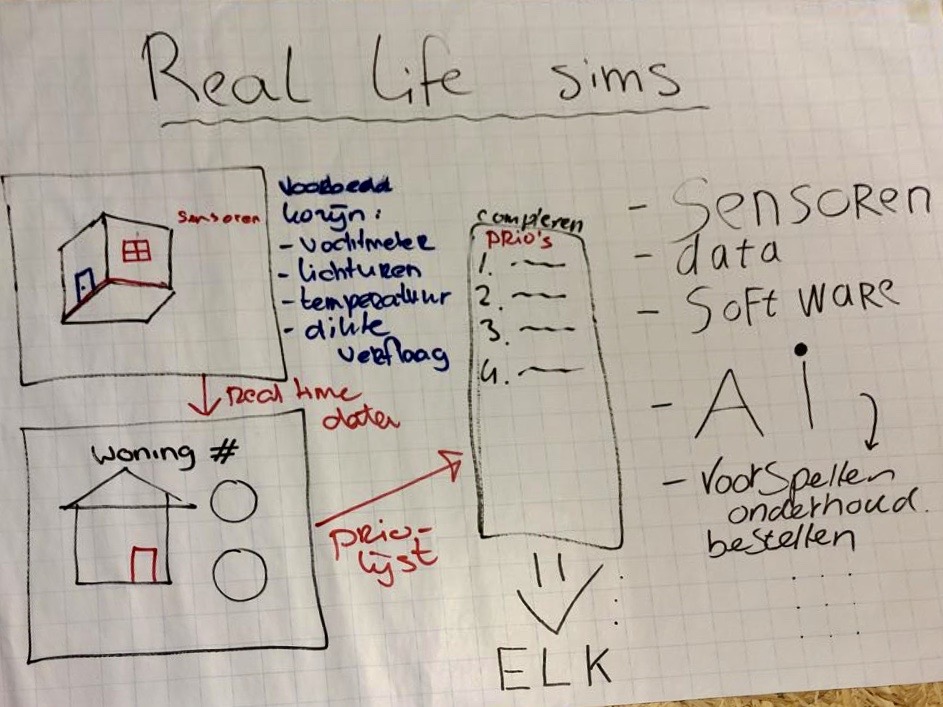 Real life sims
sensoren
Voorbeeld
kozijn:
- vochtmeter
- lichturen
- temperatuur
- dikte
verflaag
Real time
data
Woning #
prio-
lijst
compleren
PRio's
1.
2.
3.
4.
ELK
- Sensoren
- data
- Software
- Ai
- Voorspellen
onderhoud.
bestellen